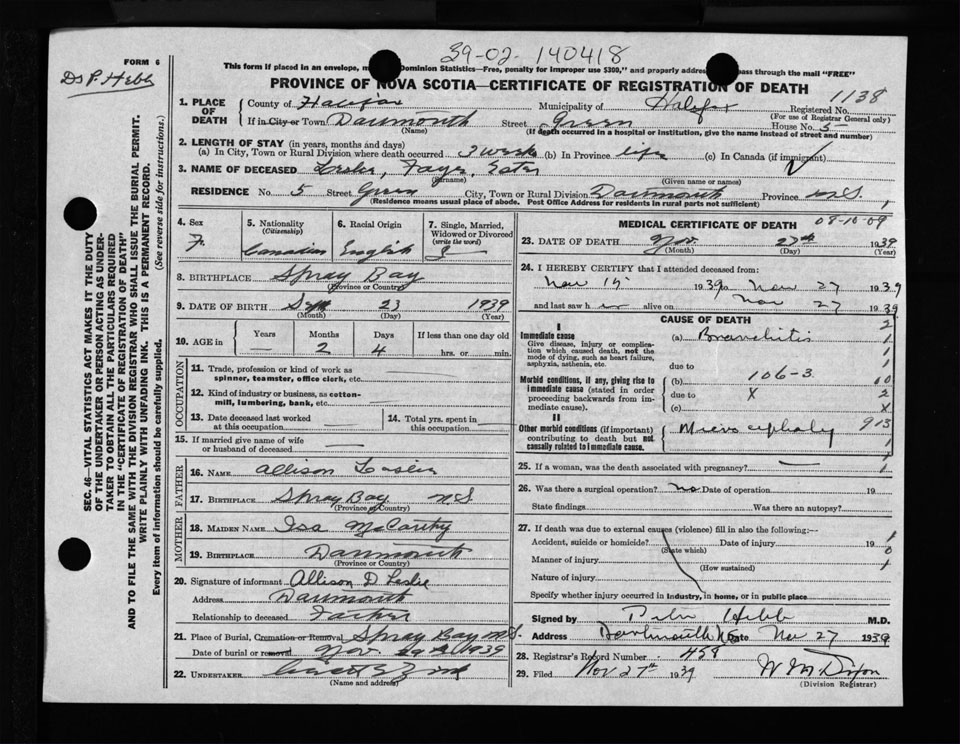 39-02-140418
FORM 6
Dr P. Hebb
This form if placed in an envelope, Dominion Statistics—Free, penalty for improper use $300," and properly address pass through the mail "FREE"
PROVINCE OF NOVA SCOTIA—CERTIFICATE OF REGISTRATION OF DEATH
1138
1. PLACE OF DEATH County of Halifax Municipality of Halifax Registered No.
(For use of Registrar General only)
If in City or Town Dartmouth Street Green House No. 5
(Name) (If death occurred in a hospital or institution, give the name instead of street and number)
2. LENGTH OF STAY (in years, months and days)
(a) In City, Town or Rural Division where death occurred 3 weeks (b) In Province life (c) In Canada (if immigrant)
3. NAME OF DECEASED Leslie, Faye,
(Surname) (Given name or names)
RESIDENCE No. 5 Street Green City, Town or Rural Division Dartmouth Province N.S.
(Residence means usual place of abode. Post Office Address for residents in rural parts not sufficient)
SEC. 46—VITAL STATISTICS ACT MAKES IT THE DUTY
OF THE UNDERTAKER OR PERSON ACTING AS UNDER-
TAKER TO OBTAIN ALL THE PARTICULARS REQUIRED
IN THE "CERTIFICATE OF REGISTRATION OF DEATH"
AND TO FILE THE SAME WITH THE DIVISION REGISTRAR WHO SHALL ISSUE THE BURIAL PERMIT.
WRITE PLAINLY WITH UNFADING INK. THIS IS A PERMANENT RECORD.
Every item of information should be carefully supplied. (See reverse side for instructions.)
4. Sex
F.
5. Nationality
(Citizenship)
Canadian
6. Racial Origin
English
7. Single, Married,
Widowed or Divorced
(write the word)
S
8. BIRTHPLACE Spray Bay
(Province or Country)
9. DATE OF BIRTH Sept 23 1939
(Month) (Day) (Year)
10. AGE in Years Months Days If less than one day old
2 4 hrs. or min.
OCCUPATION
11. Trade, profession or kind of work as
spinner, teamster, office clerk, etc.
12. Kind of industry or business, as cotton-
mill, lumbering, bank, etc.
13. Date deceased last worked
at this occupation
14. Total yrs. spent in
this occupation
15. If married give name of wife
or husband of deceased
FATHER
16. NAME Allison Leslie
17. BIRTHPLACE Spray Bay N.S.
(Province or Country)
MOTHER
18. MAIDEN NAME Isa McCarthy
19. BIRTHPLACE Dartmouth
(Province or Country)
20. Signature of informant Allison D Leslie
Address Dartmouth
Relationship to deceased Father
21. Place of Burial, Cremation or Removal Spray Bay N.S.
Date of burial or removal Nov. 29 1939
22. UNDERTAKER
(Name and address)
MEDICAL CERTIFICATE OF DEATH
09-10-09
23. DATE OF DEATH Nov. 27th 1939
(Month) (Day) (Year)
24. I HEREBY CERTIFY that I attended deceased from:
Nov 19 1939 to Nov 27 1939
and last saw her alive on Nov 27 1939
CAUSE OF DEATH
I
Immediate cause
Give disease, injury or complica-
tion which caused death, not the
mode of dying, such as heart failure,
asphyxia, asthenia, etc.
(a) Bronchitis
due to
Morbid conditions, if any, giving rise to
immediate cause (stated in order
proceeding backwards from im-
mediate cause).
(b) 106-3.
due to X
(c)
II
Other morbid conditions (if important)
contributing to death but not
causally related to immediate cause.
Microcephaly
913
25. If a woman, was the death associated with pregnancy?
26. Was there a surgical operation? no Date of operation 19
State findings Was there an autopsy?
27. If death was due to external causes (violence) fill in also the following:—
Accident, suicide or homicide? Date of injury 19
(State which)
Manner of injury
(How sustained)
Nature of injury
Specify whether injury occurred in industry, in home, or in public place
Signed by Peter Hebb M.D.
Address Dartmouth N.S. Date Nov 27 1939
28. Registrar's Record Number 458
29. Filed Nov 27th 1939 W M Dixon
(Division Registrar)